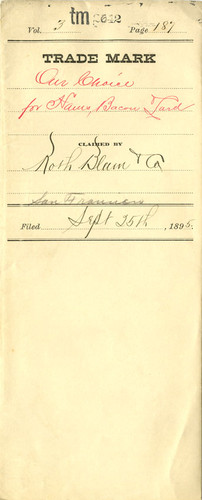 tm 2612
Vol. 3 Page 187
TRADE MARK
Our Choice
for Hams, Bacon & Lard
CLAIMED BY
Roth Blum & Co
San Francisco
Filed Sept 25th, 1895.